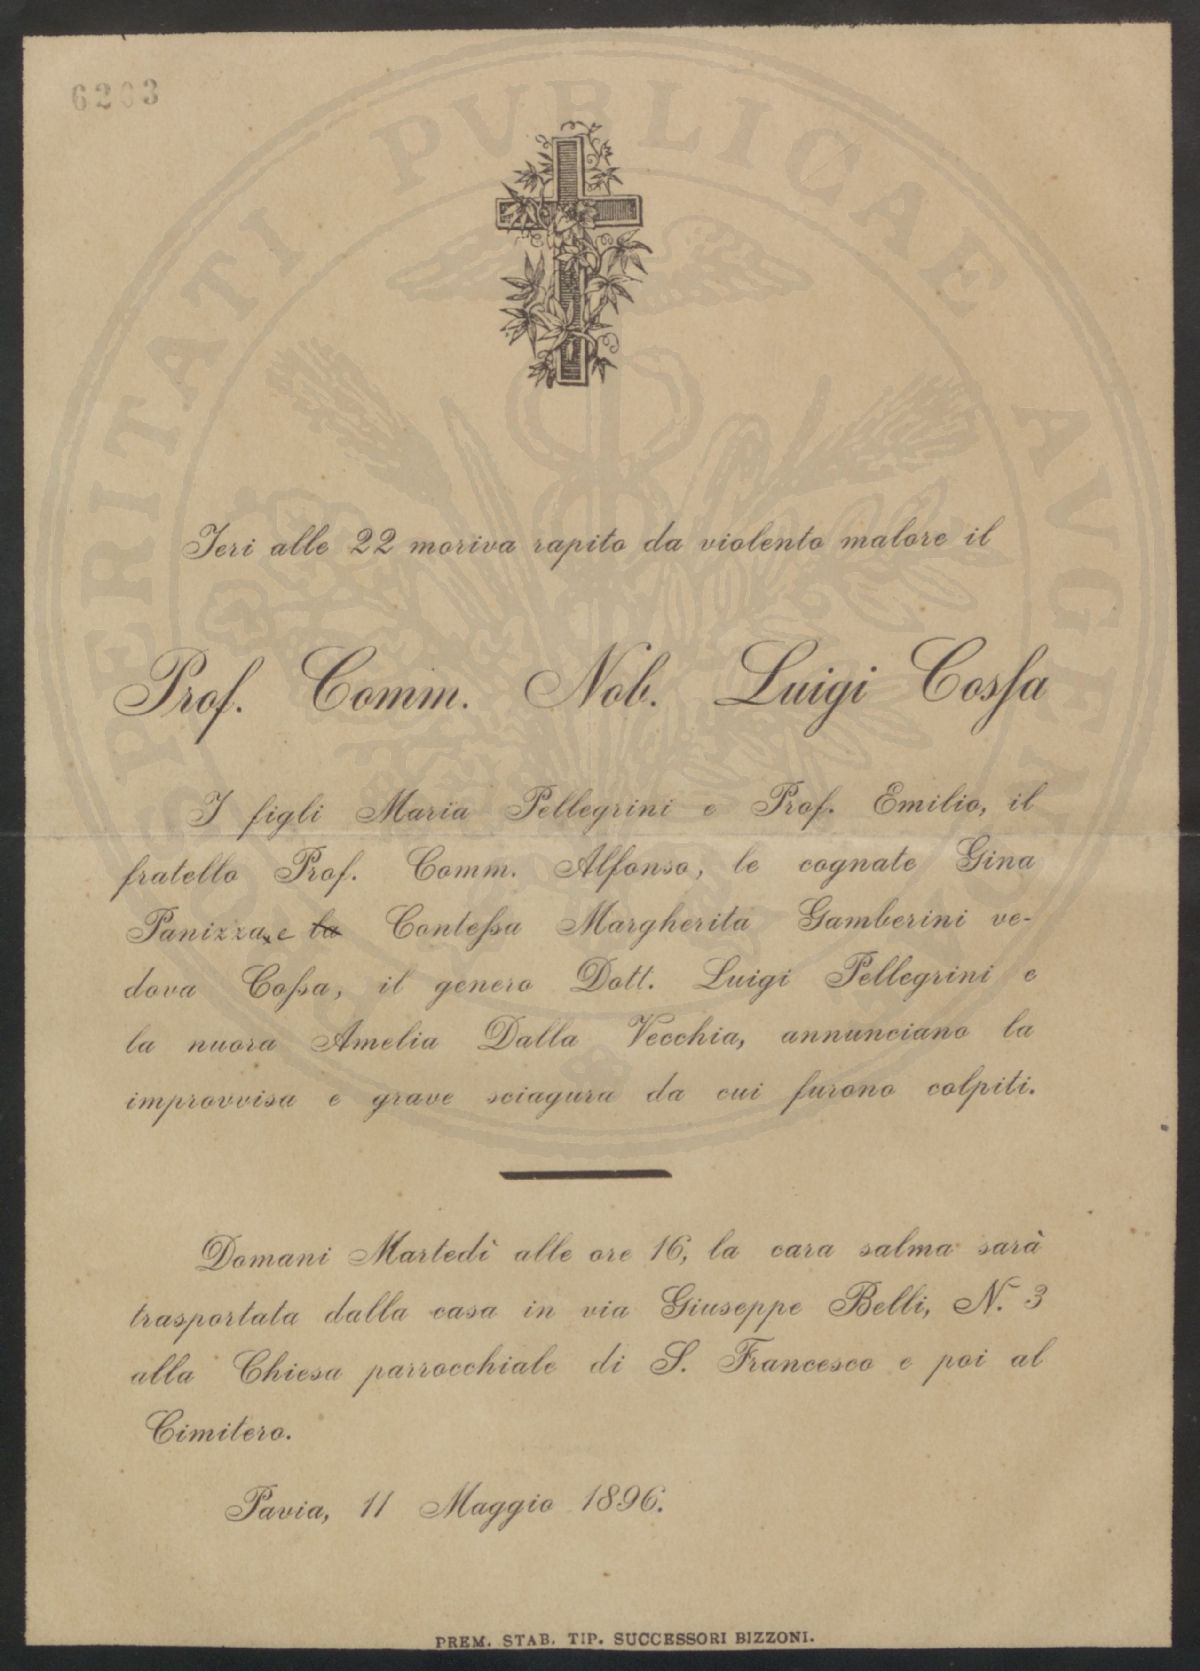 6203
Ieri alle 22 moriva rapito da violento malore il
Prof. Comm. Nob. Luigi Cossa
I figli Maria Pellegrini e Prof. Emilio, il
fratello Prof. Comm. Alfonso, le cognate Gina
Panizza, e la Contessa Margherita Gamberini ve-
dova Cossa, il genero Dott. Luigi Pellegrini e
la nuora Amelia Dalla Vecchia, annunciano la
improvvisa e grave sciagura da cui furono colpiti.
Domani Martedì alle ore 16, la cara salma sarà
trasportata dalla casa in via Giuseppe Belli, N. 3
alla Chiesa parrocchiale di S. Francesco e poi al
Cimitero.
Pavia, 11 Maggio 1896.
PREM. STAB. TIP. SUCCESSORI BIZZONI.